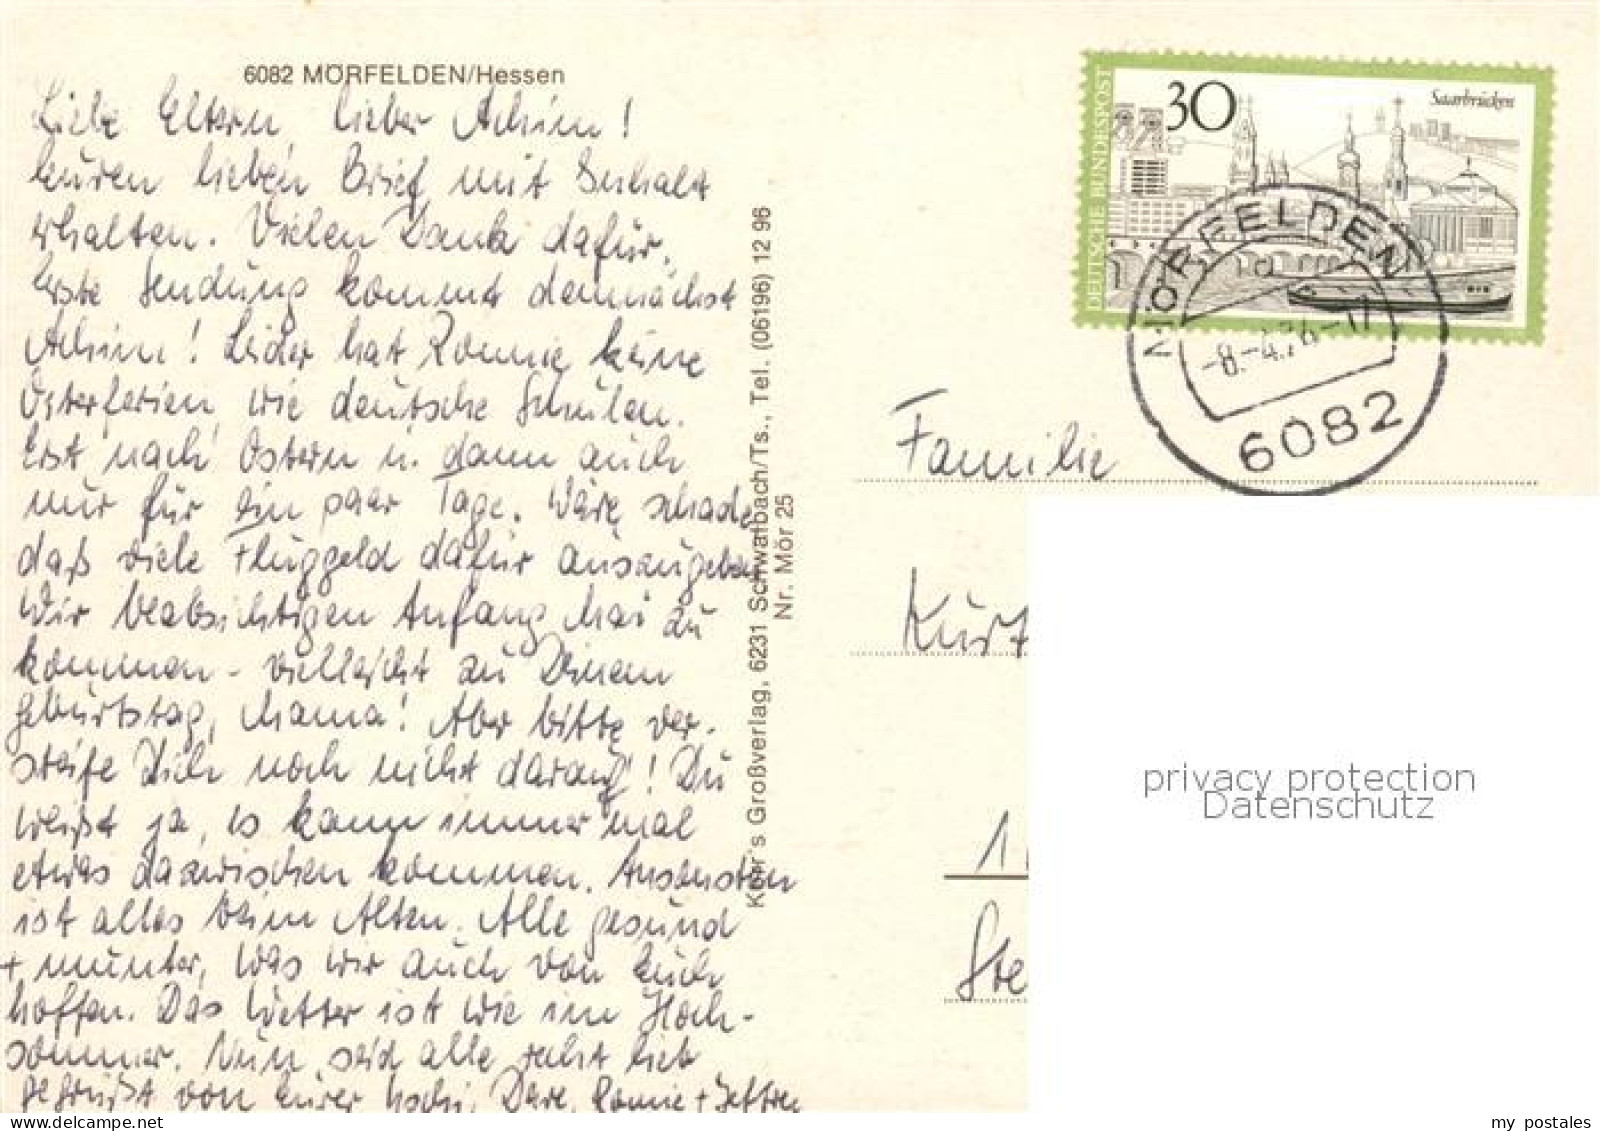 6082 MÖRFELDEN/Hessen
Liebe Eltern, lieber Achim!
Euren lieben Brief mit Inhalt
erhalten. Vielen Dank dafür.
Erste Sendung kommt demnächst
Achim! Leider hat Ronnie keine
Osterferien, wie deutsche Schulen.
Erst nach Ostern u. dann auch
nur für ein paar Tage. Wäre schade,
daß viele Fluggeld dafür auszugeben
Wir beabsichtigen Anfang Mai zu
kommen - vielleicht zu Deinem
Geburtstag, Mama! Aber bitte ver-
steife Dich noch nicht darauf! Du
weißt ja, es kann immer mal
etwas dazwischen kommen. Ansonsten
ist alles beim Alten. Alle gesund
+ munter, was wir auch von Euch
hoffen. Das Wetter ist wie im Hoch-
sommer. Nun seid alle recht lieb
gegrüßt von Eurer Dave, Ronnie + Jeffrey
Großverlag, 6231 Schwalbach/Ts., Tel. (06196) 12 96
Nr. Mör 25
DEUTSCHE BUNDESPOST
30
Saarbrücken
MÖRFELDEN
d
-8.-4.74-17
6082
Familie
Kurt
1
Ste
privacy protection
Datenschutz
my postales
delcampe.net